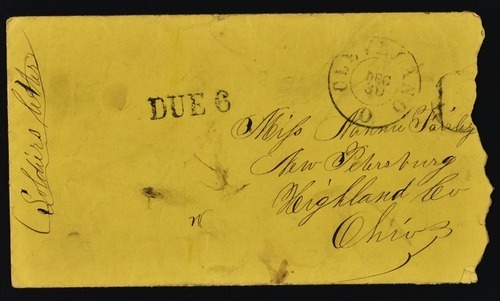 Soldiers letter
DUE 6
CLEVELAND O
DEC
30
Miss Nannie
New Petersburg
Highland Co
Ohio